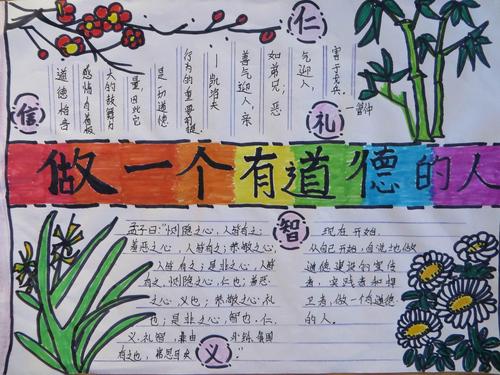 仁
礼
信
道德
感情有着极
大的鼓舞力
量,因此它
是一切道德
行为的重要前提。
——凯洛夫
善气迎人,亲
如弟兄;恶
气迎人,
害于戈兵。
—管仲
做一个有道德的人
智
义
孟子曰:“恻隐之心,人皆有之;
羞恶之心,人皆有之;恭敬之心,
人皆有之;是非之心,人皆
有之。恻隐之心,仁也;羞恶
之心,义也;恭敬之心,礼
也;是非之心,智也。仁、
义、礼智,由外
有之也,弗思耳矣。”
现在开始,
从自己开始,自觉地做
道德建设的宣传
者、实践者和捍
卫者,做一个有道德
的人。